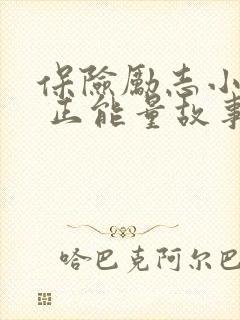 保險勵志小
正能量故事
哈巴克阿尔巴